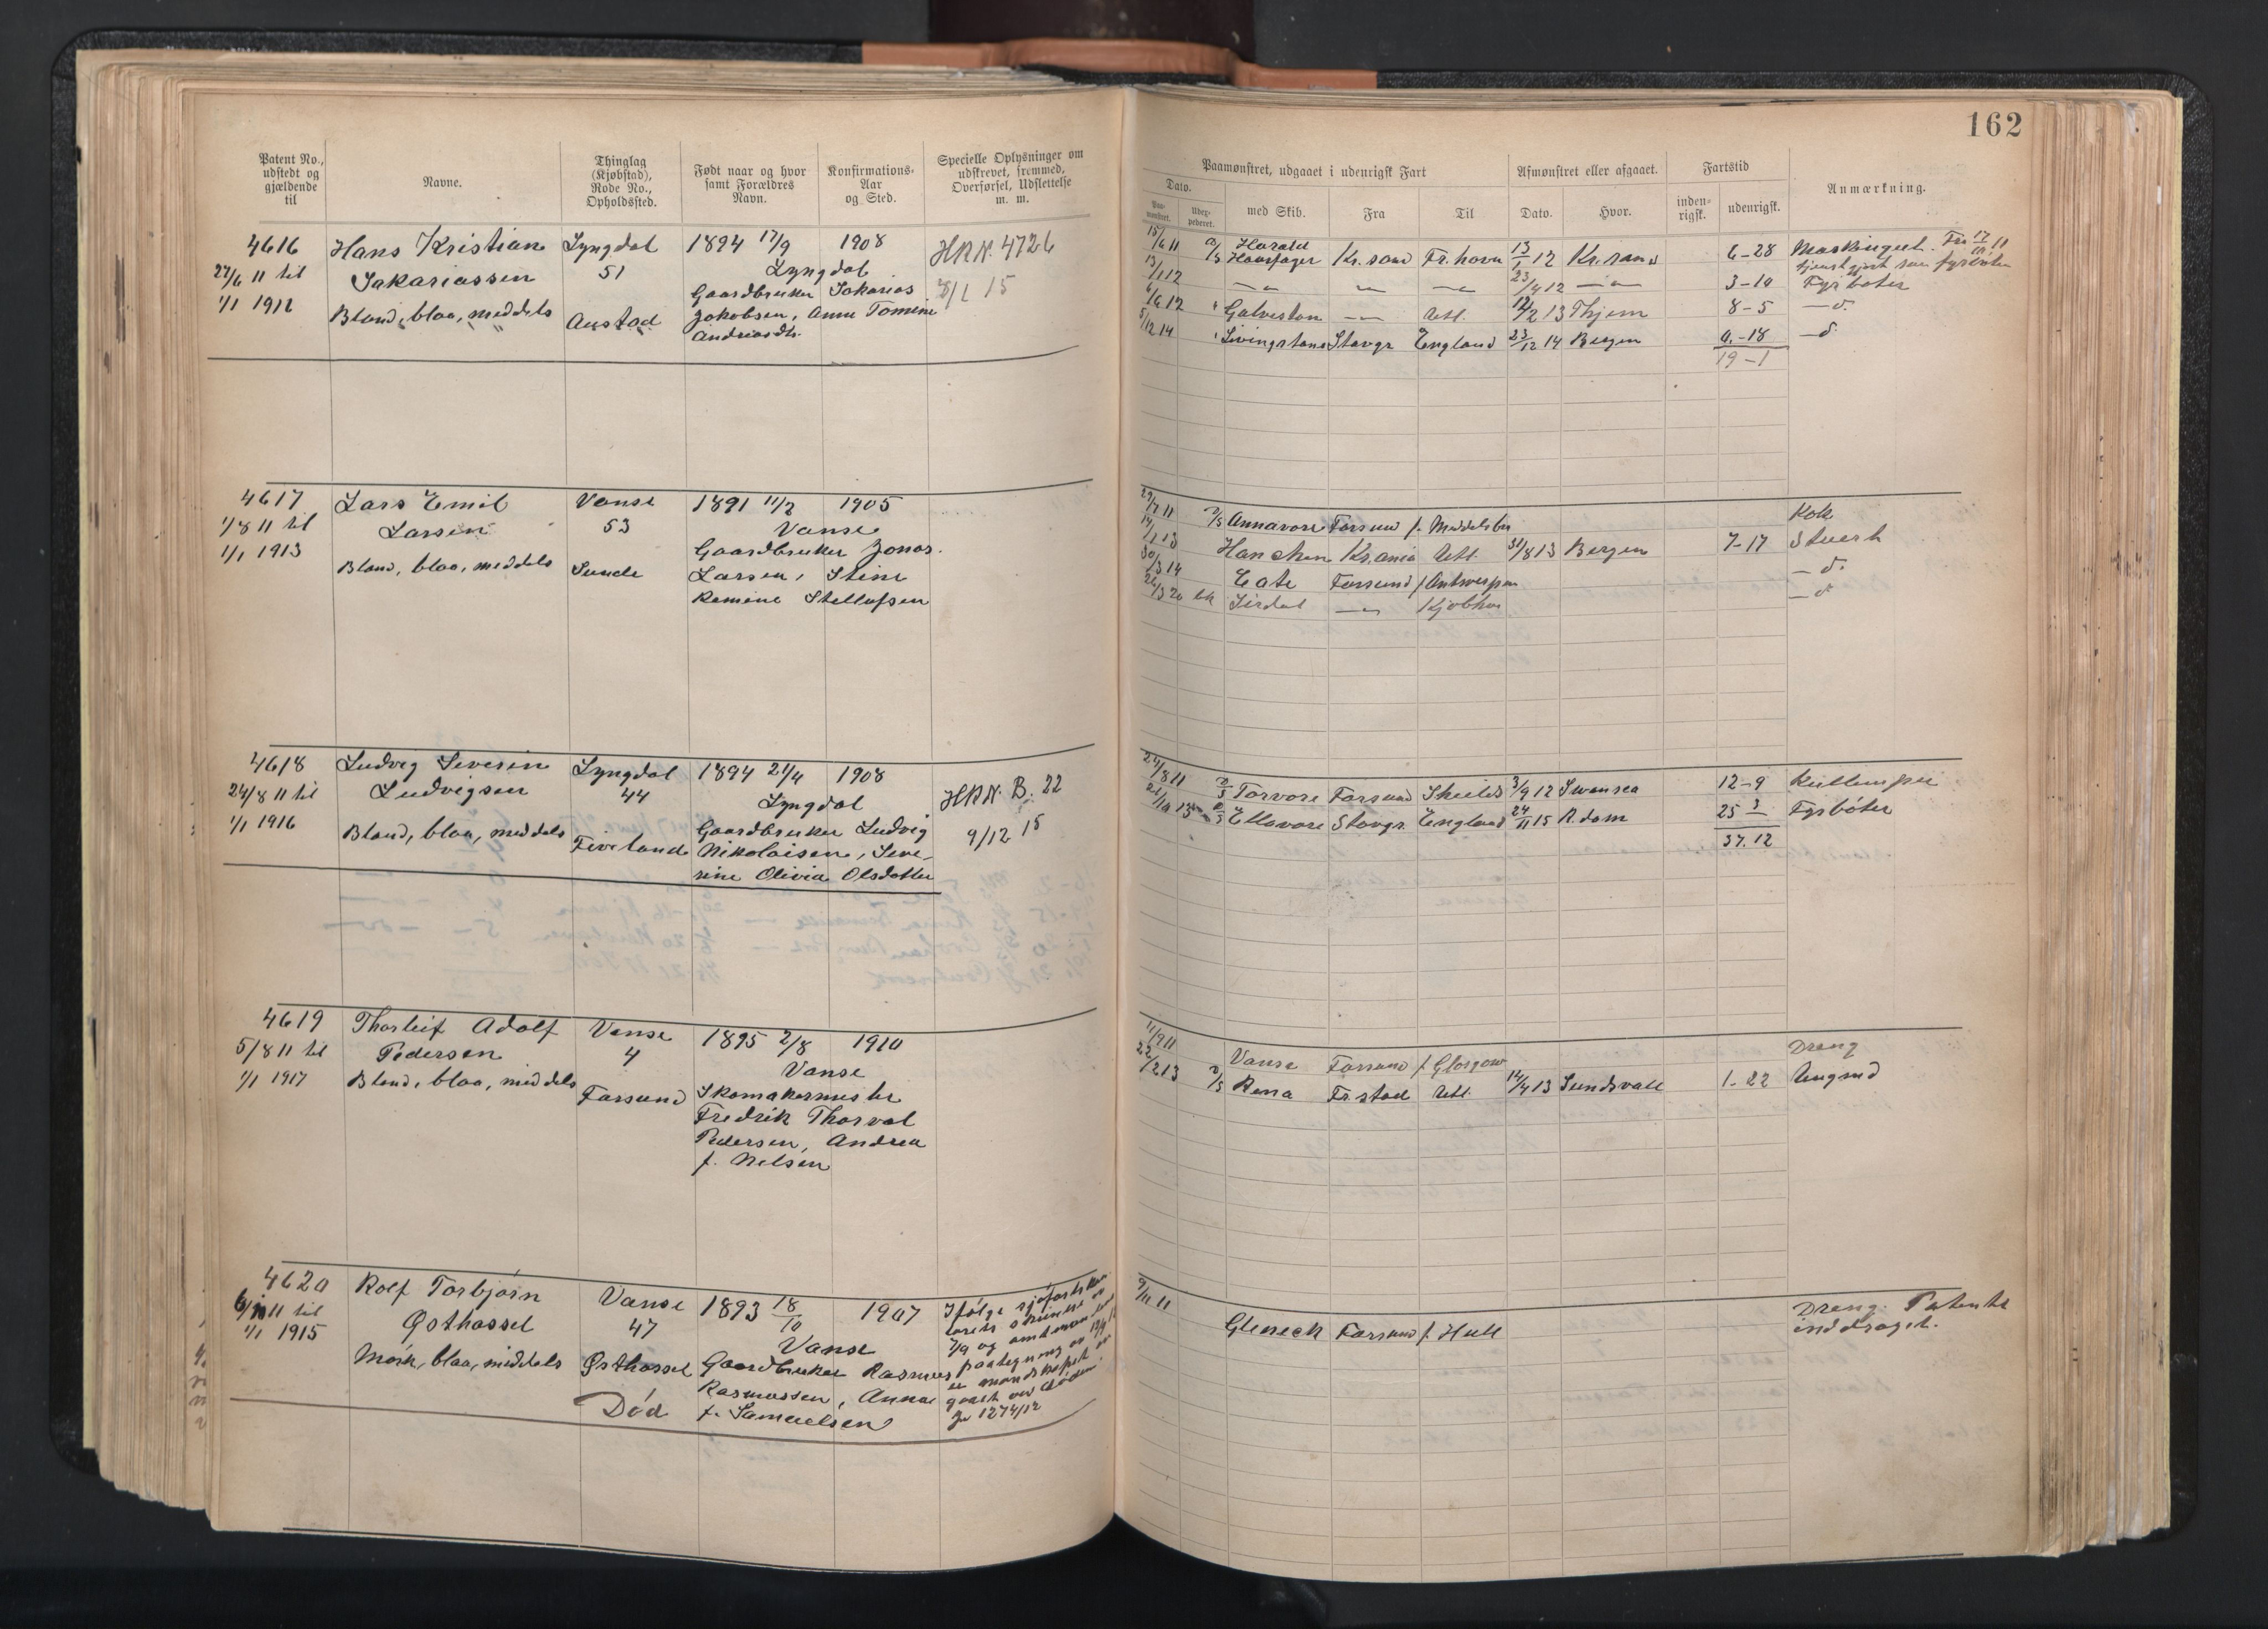 162
Patent No., udstedt og gjældende til
Navne.
Thinglag (Kjøbstad), Rode No., Opholdssted.
Født naar og hvor samt Forældres Navn.
Konfirmations-Aar og Sted.
Specielle Oplysninger om udskrevet, fremmed, Overførsel, Udslettelse m. m.
Paamønstret, udgaaet i udenrigsk Fart
Afmønstret eller afgaaet.
Fartstid
Anmærkning.
Dato.
Paamønstret.
med Skib.
Fra
Til
Dato.
Hvor.
indenrigsk.
udenrigsk.
4616 Hans Kristian Lyngdal 1894 17/9 1908 HRN. 4726
27/6 11 til Sakariassen 51 Lyngdal
1/1 1912 Gaardbruker Sakarias
Blond, blaa, meddels Austad Jakobsen, Anne Tomine
Andreasdtr.
15/6 11 Harald Haarfager Kr.sand Fr.havn 13/1 12 Kr.sand 6-28
13/1 12 — — — 23/4 12 — 3-10 Fyrbøter
6/6 12 Galveston — Utl. 12/2 13 Thjem 8-5 — d.
5/12 14 Livingstone Stavgr England 23/12 14 Bergen 0.-18 — d.
19-1
4617 Lars Emil Vanse 1891 11/2 1905
1/8 11 til Larsen 53 Vanse
1/1 1913 Gaardbruker Jonas
Blond, blaa, meddels Sunde Larsen, Stine
Remine Stellufsen
29/7 11 Annavore Farsund f. Middelsbr Kok
14/1 13 Hanseken Kr.ania Utl. 31/8 13 Bergen 7-17 Stuert
30/3 14 Eate Farsund f Antwerpen — d.
26/3 20 Sirdal — Kjøbhvn — d
4618 Ludvig Severin Lyngdal 1894 21/4 1908 HRN. B. 22
24/8 11 til Ludvigsen 44 Lyngdal 9/12 15
1/1 1916 Gaardbruker Ludvig
Blond, blaa, meddels Fiveland Nikolaisen, Seve-
rine Olivia Olsdatter
24/8 11 Torvore Farsund Shields 3/9 12 Swansea 12-9 Kullemper
Ellavore Stavgr. England 24/11 15 R.dam 25 3 Fyrbøter
37.12
4619 Thorleif Adolf Vanse 1895 2/8 1910
5/8 11 til Pedersen 4 Vanse
1/1 1917 Blond, blaa, meddels Farsund Skomakermester
Fredrik Thorval
Pedersen, Andrea
f. Nelsen
11/9 11 Vanse Farsund f. Glasgow Dreng
22/2 13 Rona Fr.stad Utl. 14/4 13 Sundsvall 1-22 Ungmd
4620 Rolf Torbjørn Vanse 1893 18/10 1907
Østhassel 47 Vanse
1/1 1915
Mørk, blaa, middels Østhassel Gaardbruker Rasmus
Rasmussen, Anna
Død f. Samuelsen
Ifølge sjøfartskon-
torets skrivelse av
7/9 og amtmandens
paategning av
er mandskapet av-
gaat ved døden
Jr 1274/12
9/11 11 Gleneck Farsund f. Hull Dreng. Patentet
inddraget.